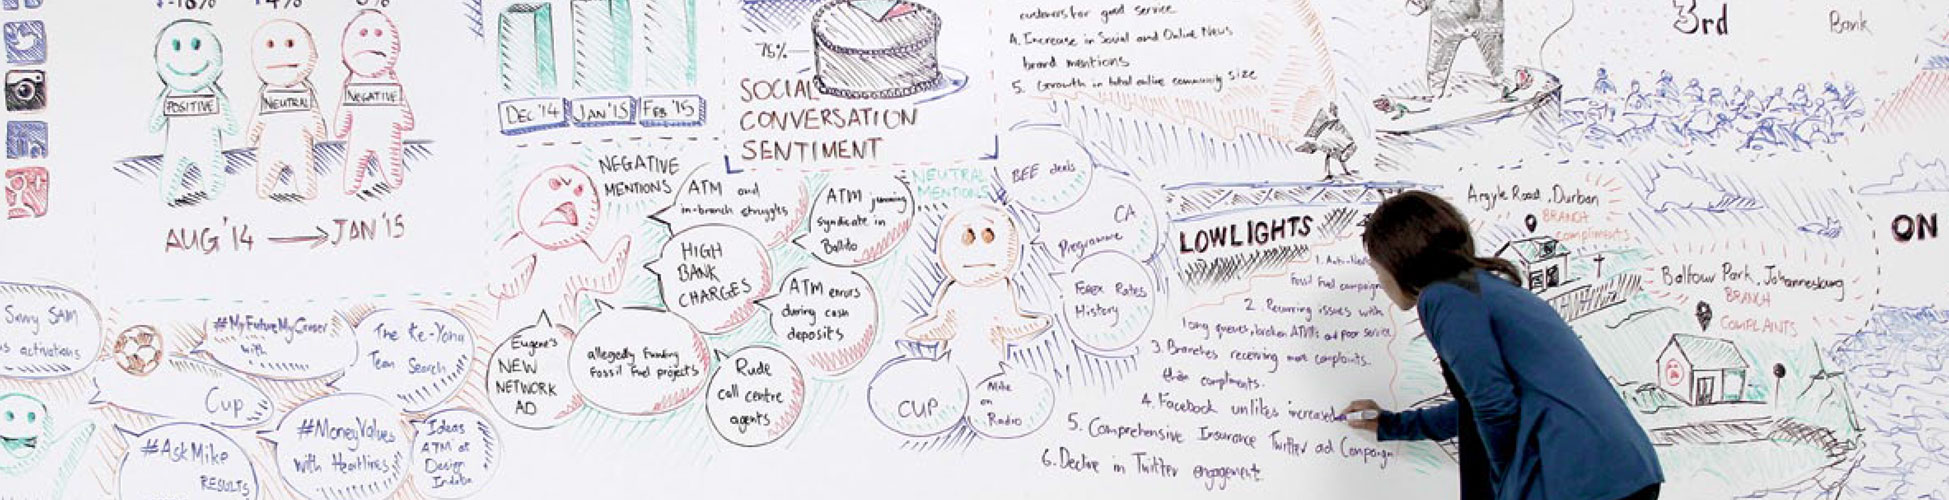 POSITIVE
NEUTRAL
NEGATIVE
AUG '14 → JAN '15
DEC '14
JAN '15
FEB '15
75%
SOCIAL
CONVERSATION
SENTIMENT
customers for good service
4. Increase in Social and Online News
brand mentions
5. Growth in total online community size
3rd
Bank
NEGATIVE
MENTIONS
ATM and
in-branch struggles
ATM jamming
syndicate in
Ballito
HIGH
BANK
CHARGES
ATM errors
during cash
deposits
Eugene's
NEW
NETWORK
AD
allegedly funding
fossil fuel projects
Rude
call centre
agents
NEUTRAL
MENTIONS
BEE deals
CA
Programme
Forex Rates
History
CUP
Mike
on
Radio
LOWLIGHTS
1. Anti-
Fossil Fuel campaign
2. Recurring issues with
long queues, broken ATMs and poor service
3. Branches receiving more complaints
than compliments.
4. Facebook unlikes increased
5. Comprehensive Insurance Twitter ad Campaign
6. Decline in Twitter engagement.
Argyle Road, Durban
BRANCH
compliments
Balfour Park, Johannesburg
BRANCH
COMPLAINTS
ON
Savvy SAM
activations
#MyFutureMyCareer
with
The Ke-Yona
Team Search
Cup
#AskMike
RESULTS
#MoneyValues
with Heartlines
Ideas
ATM at
Design
Indaba